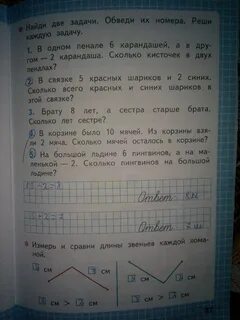 Найди две задачи. Обведи их номера. Реши
каждую задачу.
1. В одном пенале 6 карандашей, а в дру-
гом — 2 карандаша. Сколько кисточек в двух
пеналах?
2. В связке 5 красных шариков и 2 синих.
Сколько всего красных и синих шариков в
этой связке?
3. Брату 8 лет, а сестра старше брата.
Сколько лет сестре?
4. В корзине было 10 мячей. Из корзины взя-
ли 2 мяча. Сколько мячей осталось в корзине?
5. На большой льдине 6 пингвинов, а на ма-
ленькой — 2. Сколько пингвинов на большой
льдине?
Ответ
Ответ
Измерь и сравни длины звеньев каждой лома-
ной.
см см см см
см > см см > см